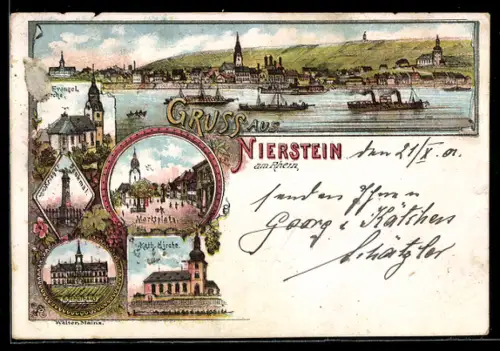 Evangel.
Kirche.
GRUSS AUS
NIERSTEIN
am Rhein,
den 21/X. 01.
Marktplatz.
senden Ihnen
Georg & Kätchen
Schätzler
Kath. Kirche.
Walton, Mainz.